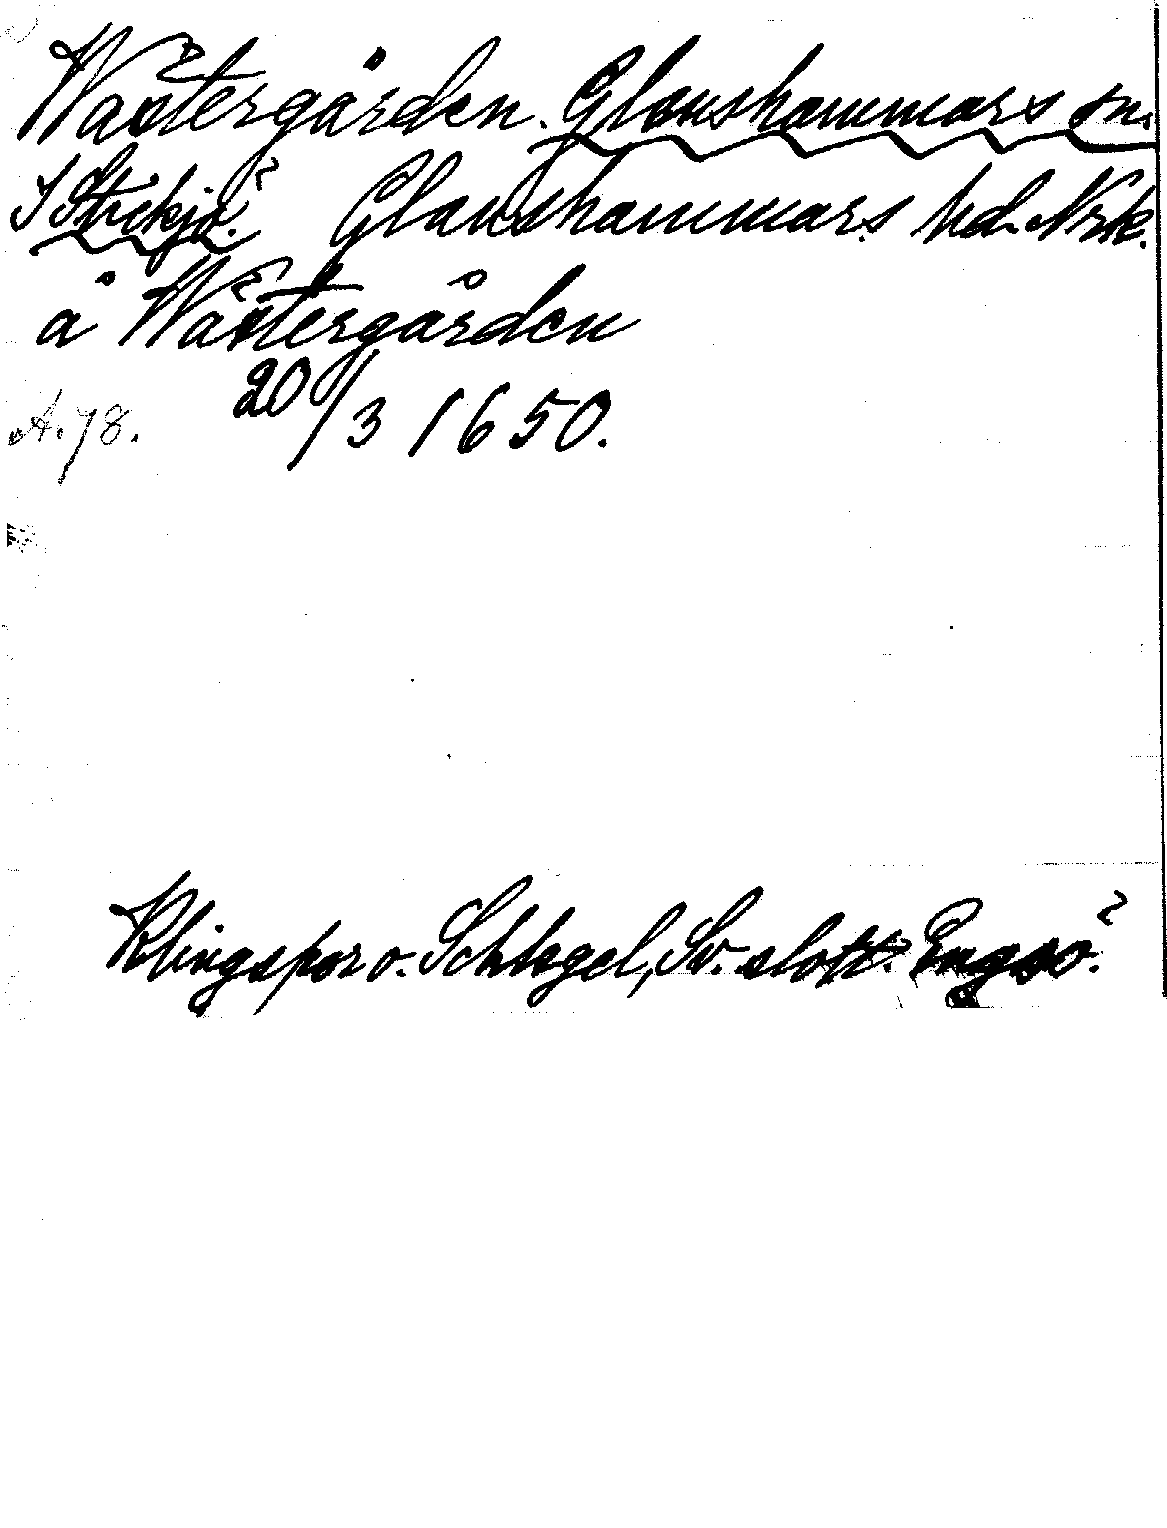 Wästergården. Glanshammars sn.
Glanshammars hd. Nrk.
å Wästergården
20/3 1650.
A. 78.
Klingspor o. Schlegel, Sv. slott. Engsö.